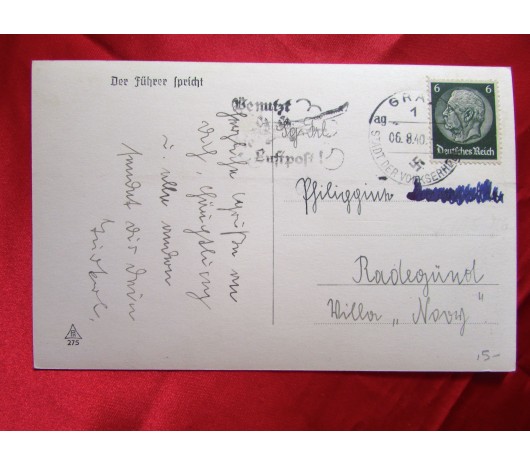 Der Führer spricht
Benutzt
Luftpost!
GRAZ
1
ag
06.8.40.
STADT DER VOLKSERHEBUNG
6 6
Deutsches Reich
herzliche Grüße an
Dich,
u. alle andern
sendet Dir Dein
Radegund
Villa „
275
,5-